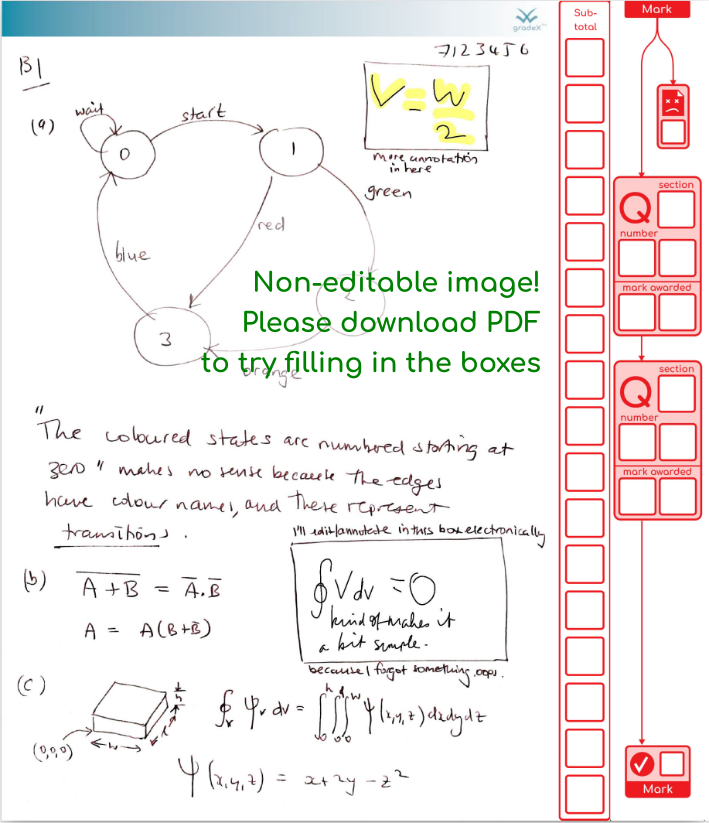 gradeX™
7123456
B1
(a)
wait
start
0
1
V = W/2
more annotation
in here
green
red
blue
2
3
orange
Non-editable image!
Please download PDF
to try filling in the boxes
"The coloured states are numbered starting at
zero" makes no sense because the edges
have colour names, and these represent
transitions.
I'll edit/annotate in this box electronically
∮ V dv = 0
kind of makes it
a bit simple.
because I forgot something, oops.
(b)
A̅ ̅+̅ ̅B̅ = A̅.B̅
A = A(B+B̅)
(c)
h
l
w
(0,0,0)
∮ᵥ ψᵥ dv = ∫₀ʰ∫₀ᵈ∫₀ʷ ψ(x,y,z) dxdydz
ψ(x,y,z) = x+2y-z²
Sub-
total
Mark
section
Q
number
mark awarded
section
Q
number
mark awarded
Mark